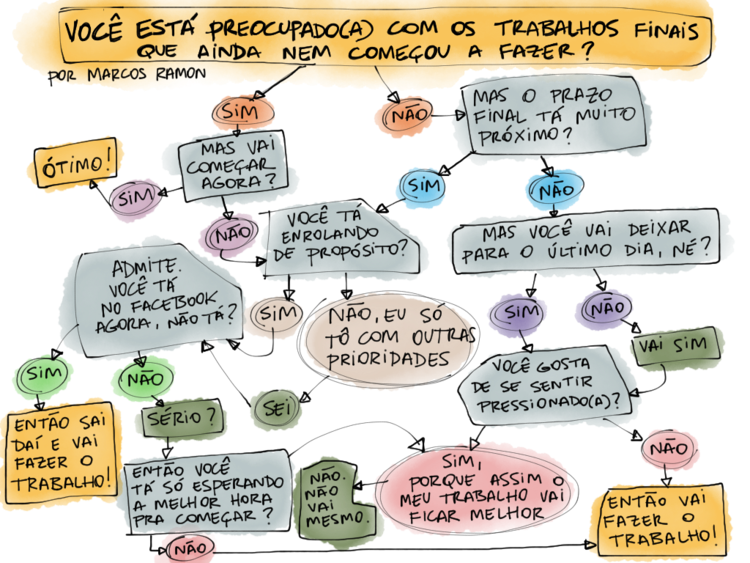 VOCÊ ESTÁ PREOCUPADO(A) COM OS TRABALHOS FINAIS
QUE AINDA NEM COMEÇOU A FAZER?
POR MARCOS RAMON
SIM
NÃO
MAS O PRAZO
FINAL TÁ MUITO
PRÓXIMO?
MAS VAI
COMEÇAR
AGORA?
ÓTIMO!
SIM
NÃO
SIM
NÃO
VOCÊ TÁ
ENROLANDO
DE PROPÓSITO?
MAS VOCÊ VAI DEIXAR
PARA O ÚLTIMO DIA, NÉ?
ADMITE.
VOCÊ TÁ
NO FACEBOOK
AGORA, NÃO TÁ?
SIM
NÃO, EU SÓ
TÔ COM OUTRAS
PRIORIDADES
SIM
NÃO
VAI SIM
SIM
NÃO
SEI
VOCÊ GOSTA
DE SE SENTIR
PRESSIONADO(A)?
SÉRIO?
ENTÃO SAI
DAÍ E VAI
FAZER O
TRABALHO!
NÃO
ENTÃO VOCÊ
TÁ SÓ ESPERANDO
A MELHOR HORA
PRA COMEÇAR?
NÃO.
NÃO
VAI
MESMO.
SIM,
PORQUE ASSIM O
MEU TRABALHO VAI
FICAR MELHOR
ENTÃO VAI
FAZER O
TRABALHO!
NÃO